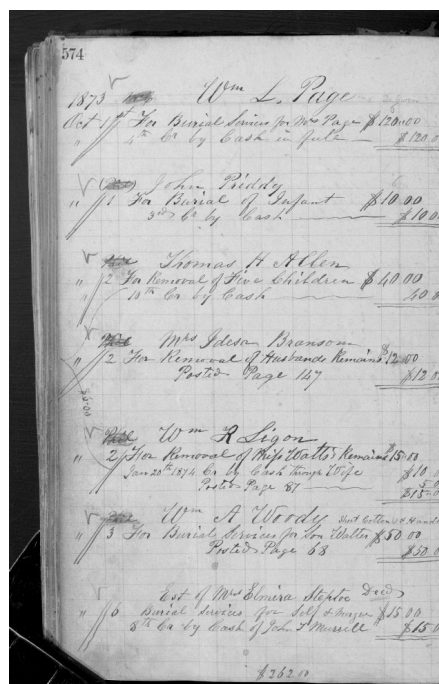 574
1873 Wm L. Page
Oct 1st For Burial Services for Mrs Page $120.00
" 4th Cr by Cash in full $120.0
John Priddy
" 1 For Burial of Infant $10.00
3rd Cr by Cash $10.0
Thomas H Allen
" 2 For Removal of Five Children $40.00
" 10th Cr by Cash 40.0
Mrs Idesa Bransom
" 2 For Removal of Husbands Remains $12.00
Posted Page 147 $12.0
$5.00
Wm R Ligon
" 2 For Removal of Miss Watts Remains $15.00
Jan 20th 1874 Cr by Cash through Wife $10
Posted Page 87 5.0
$15.0
Wm A Woody
" 3 For Burial Services for Son Walter $50.00
Posted Page 68 $50.0
Est of Mrs Elmira Steptoe Decd
" 6 Burial Services for Self & $15.00
8th Cr by Cash of John T Murrell $15.0
$262.00